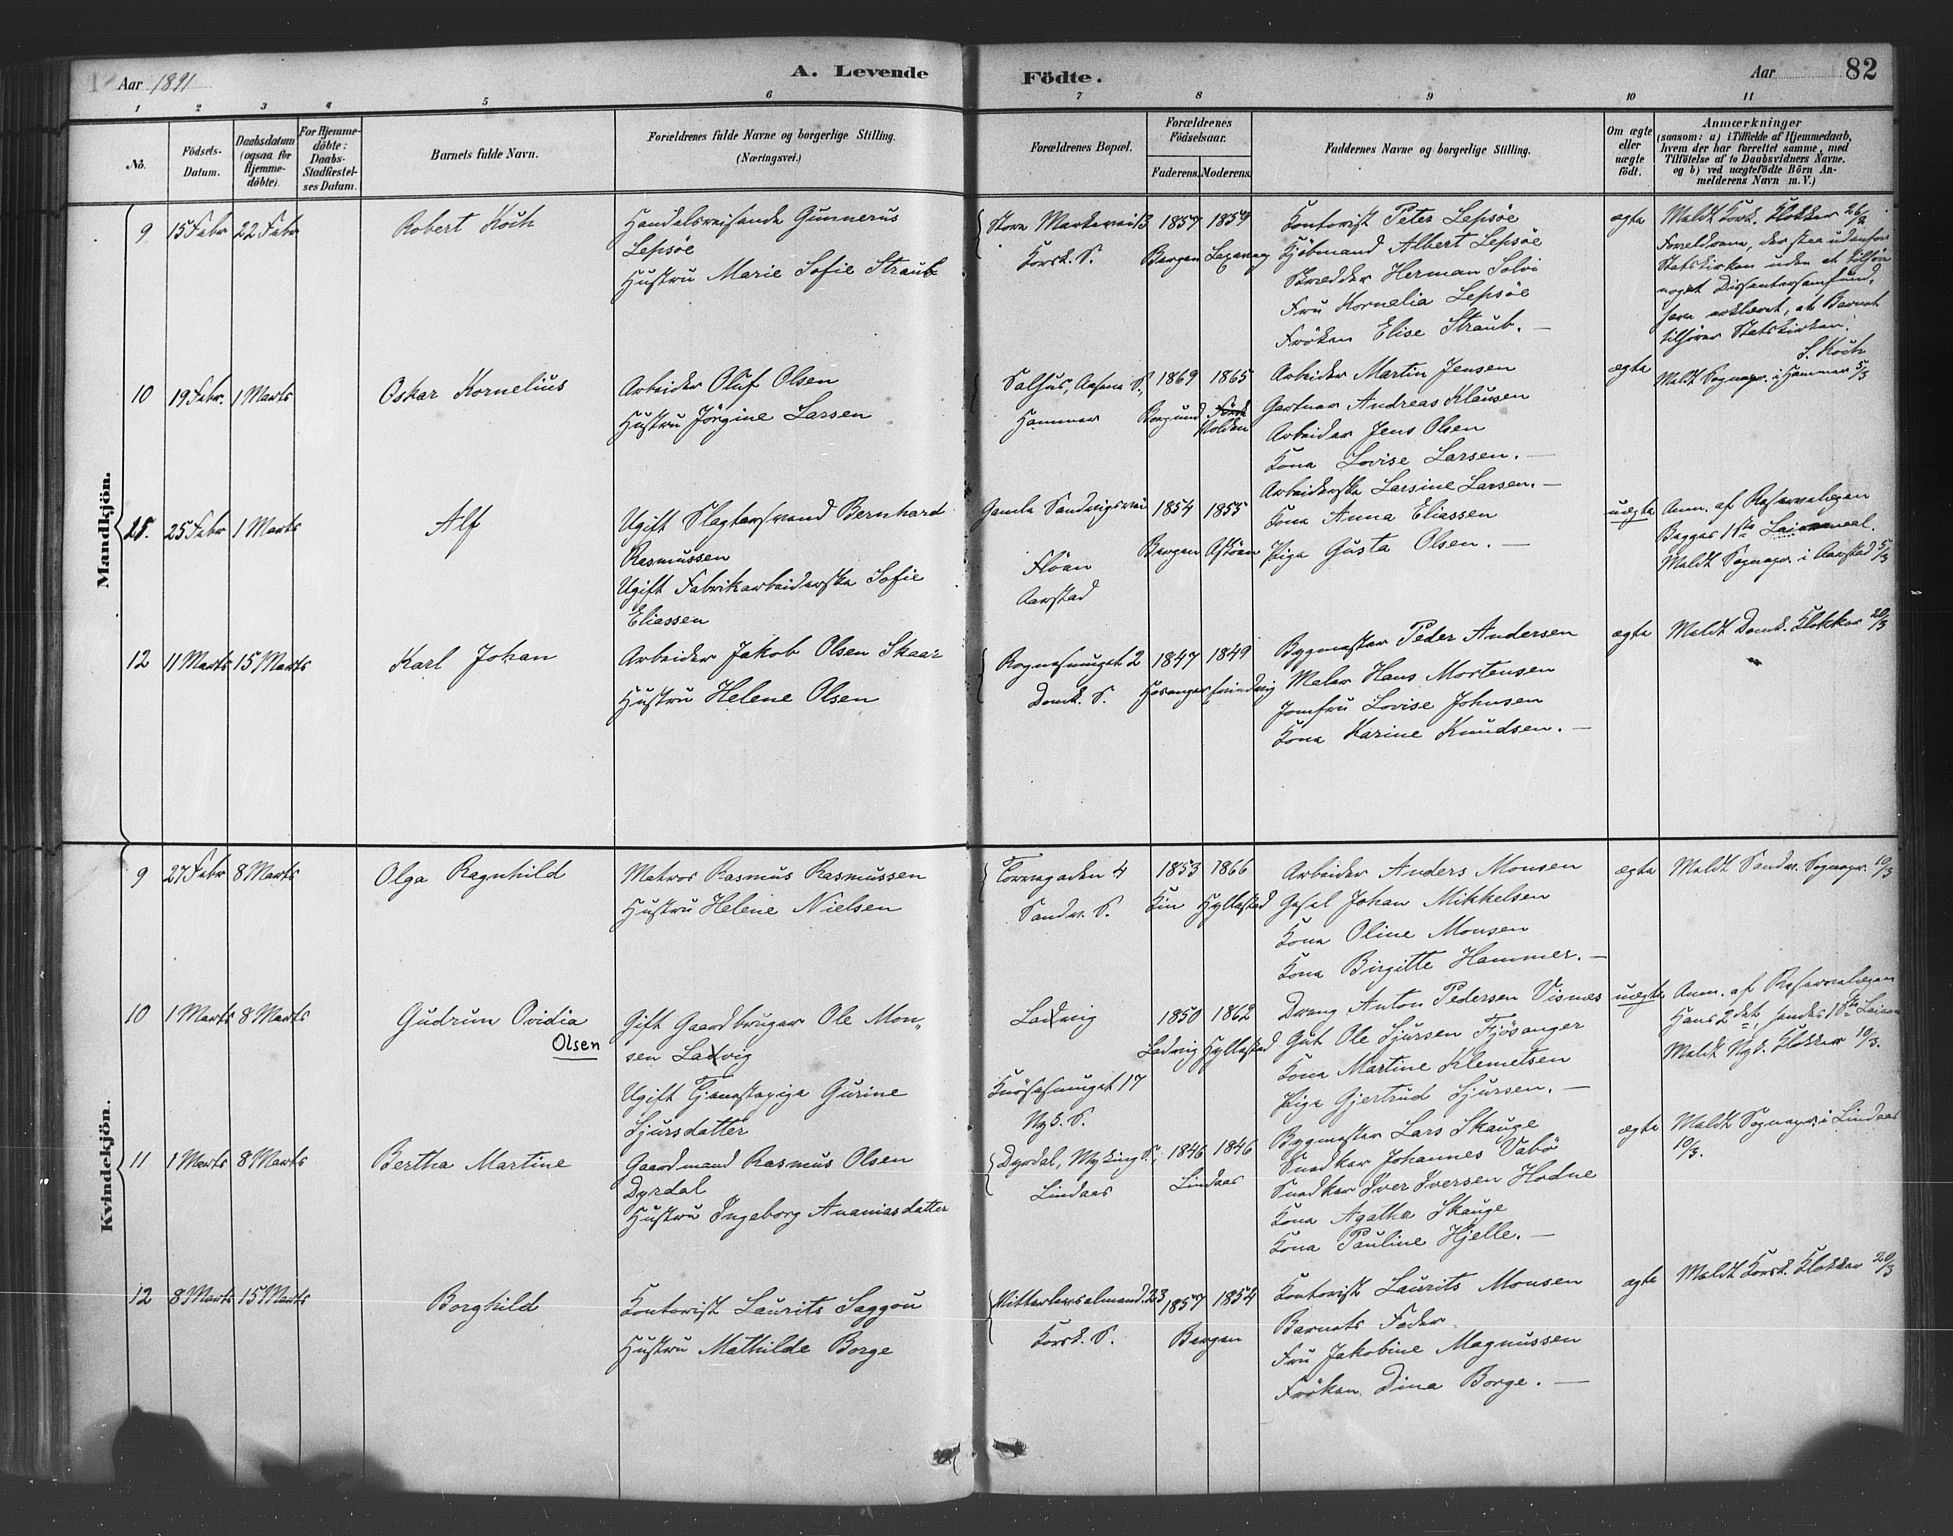 Aar 1891
A. Levende
Födte.
Aar
82
1 2 3 4 5 6 7 8 9 10 11
No.
Födsels-
Datum.
Daabsdatum
(ogsaa for
Hjemme-
döbte).
For Hjemme-
döbte:
Daabs-
Stadfæstel-
ses Datum.
Barnets fulde Navn.
Forældrenes fulde Navne og borgerlige Stilling.
(Næringsvei.)
Forældrenes Bopæl.
Forældrenes
Födselsaar.
Faderens. Moderens.
Faddernes Navne og borgerlige Stilling.
Om ægte
eller
uægte
födt.
Anmærkninger
(saasom: a) i Tilfælde af Hjemmedaab,
hvem der har forrettet samme, med
Tilföielse af to Daabsvidners Navne.
og b) ved uægtefödte Börn An-
melderens Navn m. V.)
Mandkjön.
9 15 Febr 22 Febr
Robert Koch
Handelsreisende Gunnerus
Lepsöe
Hustru Marie Sofie Straub
Store Markevei 13
Korsk. S.
1857 1859
Bergen
Kontorist Peter Lepsöe
Kjöbmand Albert Lepsöe
Skredder Herman Solvi
Fru Kornelia Lepsöe
Fröken Elise Straub. —
ægte
Meldt Kork. Klokker 26/2
Foreldrene, der staa udenfor
Statskirken uden at tilhöre
noget Dissentersamfund,
have erklæret, at Barnet
tilhörer Statskirken.
S. Koch
10 19 Febr. 1 Marts
Oskar Kornelius
Arbeider Oluf Olsen
Hustru Jörgine Larsen
Salhus, Aasene S.,
Hammer
1869 1865
Borgund
Molden
Arbeider Martin Jensen
Gartner Andreas Klausen
Arbeider Jens Olsen
Kone Lovise Larsen. —
Arbeiderske Larsine Larsen. —
ægte
Meldt Sognepr. i Hammer 5/3
11. 25 Febr 1 Marts
Alf
Ugift Slagtersvend Bernhard
Rasmussen
Ugift Fabrikarbeiderske Sofie
Eliassen
Gamle Sandvigsvei
Flöen
Aarstad
1854 1855
Bergen Asköen
Kone Anna Eliassen
Pige Gusta Olsen. —
uægte
Anm. af Reservelægen
Begges 1ste Leiermaal.
Meldt Sognepr. i Aarstad 5/3
12 11 Marts 15 Marts
Karl Johan
Arbeider Jakob Olsen Skaar
Hustru Helene Olsen
Rognesmuget 2
Domk. S.
1847 1849
Hosanger Evindvig
Bygmester Peder Andersen
Maler Hans Mortensen
Jomfru Lovise Johnsen
Kone Karine Knudsen. —
ægte
Meldt Domk. Klokker 20/3
Kvindekjön.
9 27 Febr 8 Marts
Olga Ragnhild
Matros Rasmus Rasmussen
Hustru Helene Nielsen
Torvegaden 4
Sandv. S.
1853 1866
Kin Hyllestad
Arbeider Anders Monsen
Gesel Johan Mikkelsen
Kone Oline Monsen
Kone Birgitte Hammer. —
ægte
Meldt Sandv. Sognepr. 10/3
10 1 Marts 8 Marts
Gudrun Ovidia
Olsen
Gift Gaardbruger Ole Mon-
sen Ladvig
Ugift Tjenestepige Gurine
Sjursdatter
Ladvig
Knösesmuget 17
Nyk. S.
1850 1862
Ladvig Hyllestad
Dreng Anton Pedersen Visnes
Gut Ole Sjursen Fjösanger
Kone Martine Klemetsen
Pige Gjertrud Sjursen. —
uægte
Anm. af Reservelægen
Hans 2det, hendes 1ste Leierm
Meldt Nyk. Klokker 10/3.
11 1 Marts 8 Marts
Bertha Martine
Gaardmand Rasmus Olsen
Dyrdal
Hustru Ingeborg Ananiasdatter
Dyrdal, Myking S.,
Lindaas
1846 1846
Lindaas
Bygmester Lars Skauge
Snedker Johannes Vabö
Snedker Iver Iversen Hodne
Kone Agathe Skauge
Kone Pauline Hjelle. —
ægte
Meldt Sognepr. i Lindaas
10/3.
12 8 Marts 15 Marts
Borghild
Kontorist Laurits Saggou
Hustru Mathilde Borge
Mitterlevsalmend. 23
Korsk. S.
1857 1854
Bergen
Kontorist Laurits Monsen
Barnets Fader
Fru Jakobine Magnussen
Fröken Dina Borge. —
ægte
Meldt Korsk. Klokker 20/3